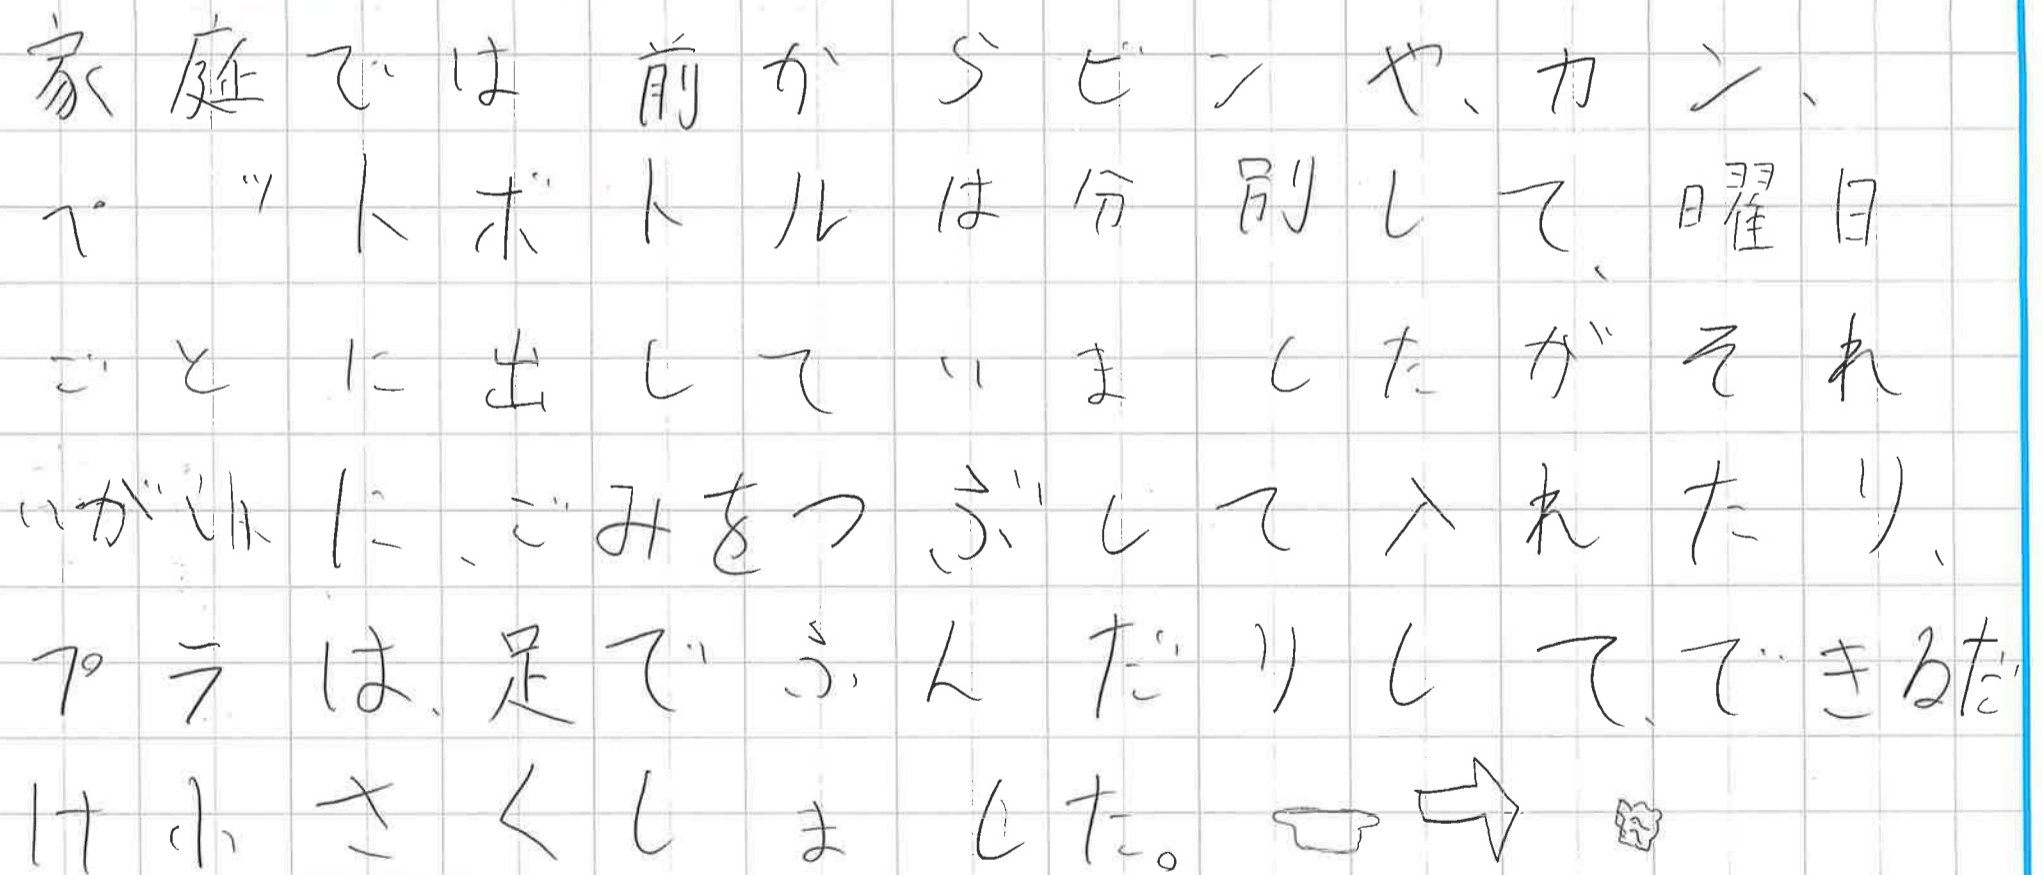 家庭では前からビンや、カン、
ペットボトルは分別して、曜日
ごとに出していましたがそれ
いがいに、ごみをつぶして入れたり、
プラは、足でふんだりして、できるだ
け小さくしました。